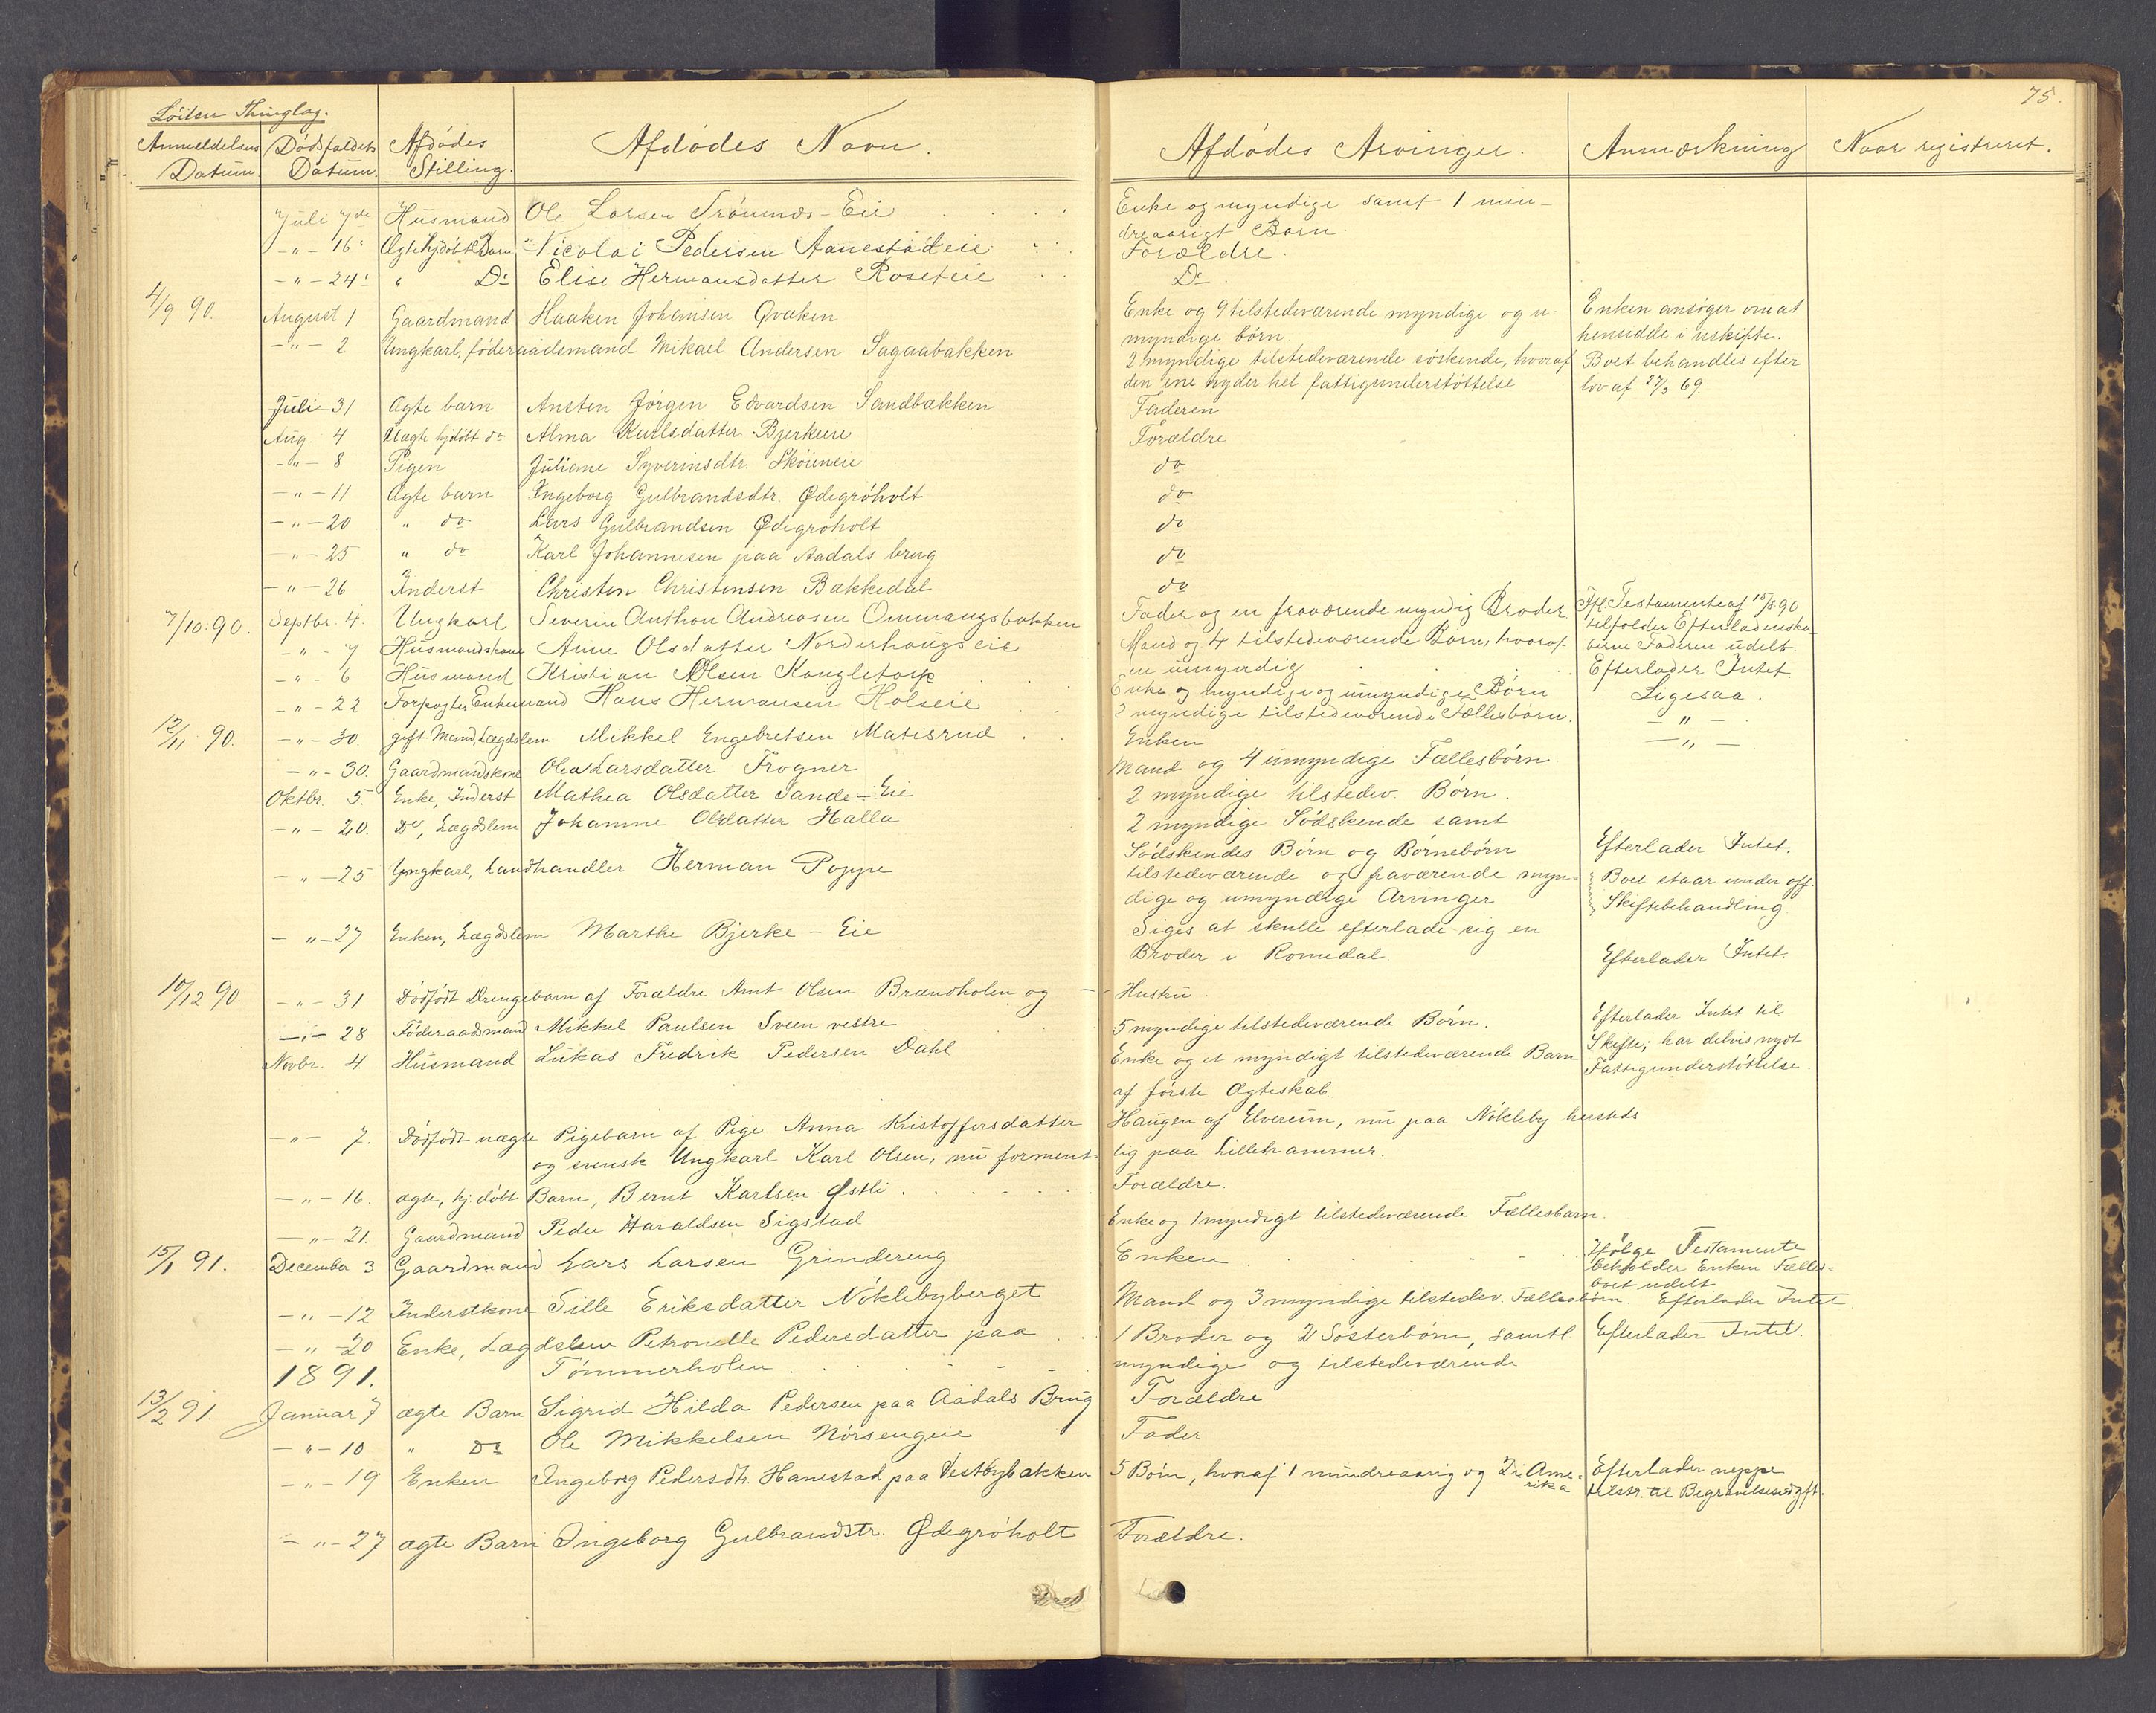 75.
Löiten Thinglag.
Anmeldelsens Datum Dødsfaldets Datum. Afdödes Stilling. Afdödes Navn. Afdödes Arvinger. Anmærkning Naar registreret.
Juli 7de Husmand Ole Larsen Trönnæs-Eie Enke og myndige samt 1 min-
dreaarigt Barn.
-"- 16: Ægte hjdöbt Barn Nicolai Pedersen Aanestadeie Forældre.
-"- 24: " Do Elise Hermansdatter Roseteie Do
4/9 90. August 1 Gaardmand Haaken Johansen Qvaken Enke og 9 tilstedeværende myndige og u- Enken ansöger om at
myndige börn. hensidde i uskifte.
-"- 2 Ungkarl, föderaadsmand Mikael Andersen Sagaabakken 2 myndige tilstedeværende söskende, hvoraf Boet behandles efter
den ene nyder hel fattigunderstöttelse lov af 27/3 69.
Juli 31 Ægte barn Ansten Jörgen Edvardsen Sandbakken Faderen
Aug. 4 Uægte hjdöbt do Alma Karlsdatter Bjerkeeie Forældre
-"- 8 Pigen Juliane Syverinsdtr. Sköieneie do
-"- 11 Ægte barn Ingeborg Gulbrandsdtr. Ødegröholt do
-"- 20 " do Lars Gulbrandsen Ødegroholt do
-"- 25 " do Karl Johannesen paa Aadals brug do
-"- 26 Inderst Christen Christensen Bækkedal do
7/10. 90. Septbr. 4. Ungkarl Severin Anthon Andreasen Ommangsbakken Fader og en fraværende myndig Broder Ifl. Testamente af 15/8 90
tilfalder Efterladenska-
-"- 7 Husmandskone Anne Olsdatter Norderhaugseie Mand og 4 tilstedeværende Börn, hvoraf berne Faderen udelt.
en umyndig Efterlader Intet.
-"- 6 Husmand Kristian Olsen Kongletorp Enke og myndige og umyndige Börn Ligesaa.
-"- 22 Forpagter, Enkemand Hans Hermansen Holseie 2 myndige tilstedeværende Fællesbörn. -"-
12/11 90. -"- 30. gift Mand, Lægdslem Mikkel Engebretsen Matisrud Enken -"-
-"- 30. Gaardmandskone Olea Larsdatter Frogner Mand og 4 umyndige Fællesbörn
Oktbr. 5. Enke, Inderst Mathea Olsdatter Sande-Eie 2 myndige tilstedev. Börn.
-"- 20. Do, Lægdslem Johanne Olsdatter Halla 2 myndige Södskende samt
Södskendes Börn og Börnebörn Efterlader Intet.
-"- 25 Ungkarl, Landhandler Herman Poppe tilstedeværende og fraværende myn- Boet staar under off.
dige og umyndige Arvinger Skiftebehandling
-"- 27 Enken, Lægdslem Marthe Bjerke-Eie Siges at skulle efterlade sig en
Broder i Romedal Efterlader Intet.
10/12 90. -"- 31 Dödfödt Drengebarn af Forældre Arnt Olsen Brændholen og Hustru.
-"- 28 Föderaadsmand Mikkel Paulsen Sveen vestre 5 myndige tilstedeværende Börn. Efterlader Intet til
Skifte; har delvis nydt
Novbr. 4. Husmand Lukas Fredrik Pedersen Dahl Enke og et myndigt tilstedeværende Barn Fattigunderstöttelse.
af förste Ægteskab.
-"- 7. Dödfödt uægte Pigebarn af Pige Anna Kristoffersdatter Haugen af Elverum, nu paa Nökleby hersteds
og svensk Ungkarl Karl Olsen, nu forment- lig paa Lillehammer.
-"- 16. ægte, hj.döbt Barn, Bernt Karlsen Østli Forældre.
-"- 21. Gaardmand Peder Haraldsen Sigstad Enke og 1 myndigt tilstedeværende Fællesbarn.
15/1 91. December 3 Gaardmand Lars Larsen Grindereng Enken Ifölge Testamente
beholder Enken Fælles-
boet udelt
-"- 12 Inderstkone Sille Eriksdatter Nöklebyberget Mand og 3 myndige tilstedev. Fællesbörn. Efterlader Intet
-"- 20 Enke, Lægdslem Petronelle Pedersdatter paa 1 Broder og 2 Sösterbörn, samtl. Efterlader Intet.
Tömmerholen myndige og tilstedeværende
1891.
13/2 91. Januar 7 ægte Barn Sigrid Hilda Pedersen paa Aadals Brug Forældre
-"- 10 " Do Ole Mikkelsen Nörsengeie Fader
-"- 19 Enken Ingeborg Pedersdtr. Hanestad paa Vestbybakken 5 Börn, hvoraf 1 mindreaarig og 2 i Ame- Efterlader neppe
rika tilstr. til Begravelsesudgift.
-"- 27 ægte Barn Ingeborg Gulbrandstr. Ødegröholt Forældre.